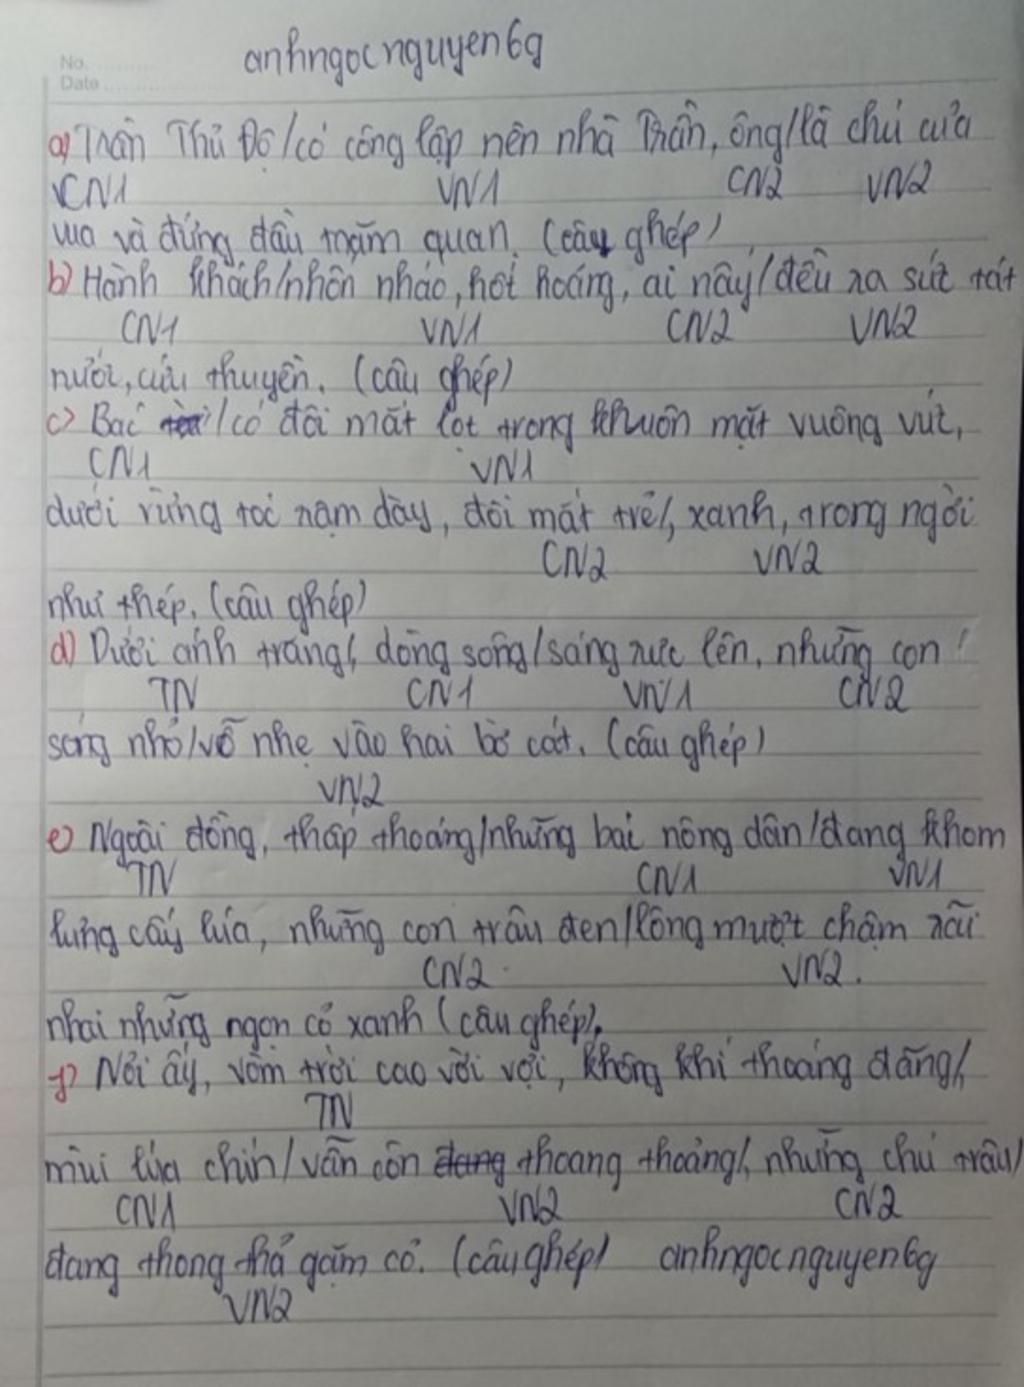 anhngocnguyen6g
No.
Date
a) Trần Thủ Độ/có công lập nên nhà Trần, ông/là chú của
CN1 VN1 CN2 VN2
vua và đứng đầu trăm quan. (câu ghép)
b) Hành khách/nhốn nháo, hớt hoảng, ai nấy/đều ra sức tát
CN1 VN1 CN2 VN2
nước, cứu thuyền. (câu ghép)
c) Bác /có đôi mắt lọt trong khuôn mặt vuông vức,
CN1 VN1
dưới rừng tóc rậm dày, đôi mắt trẻ/, xanh, trong ngời
CN2 VN2
như thép. (câu ghép)
d) Dưới ánh trăng/, dòng sông/sáng rực lên, những con
TN CN1 VN1 CN2
sóng nhỏ/vỗ nhẹ vào hai bờ cát. (câu ghép)
VN2
e) Ngoài đồng, thấp thoáng/những bác nông dân/đang khom
TN CN1 VN1
lưng cấy lúa, những con trâu đen/lông mượt chậm rãi
CN2 VN2.
nhai những ngọn cỏ xanh (câu ghép).
f) Nơi ấy, vòm trời cao vời vợi, không khí thoáng đãng/,
TN
mùi lúa chín/vẫn còn đang thoang thoảng/, những chú trâu/
CN1 VN2 CN2
đang thong thả gặm cỏ. (câu ghép) anhngocnguyen6g
VN2